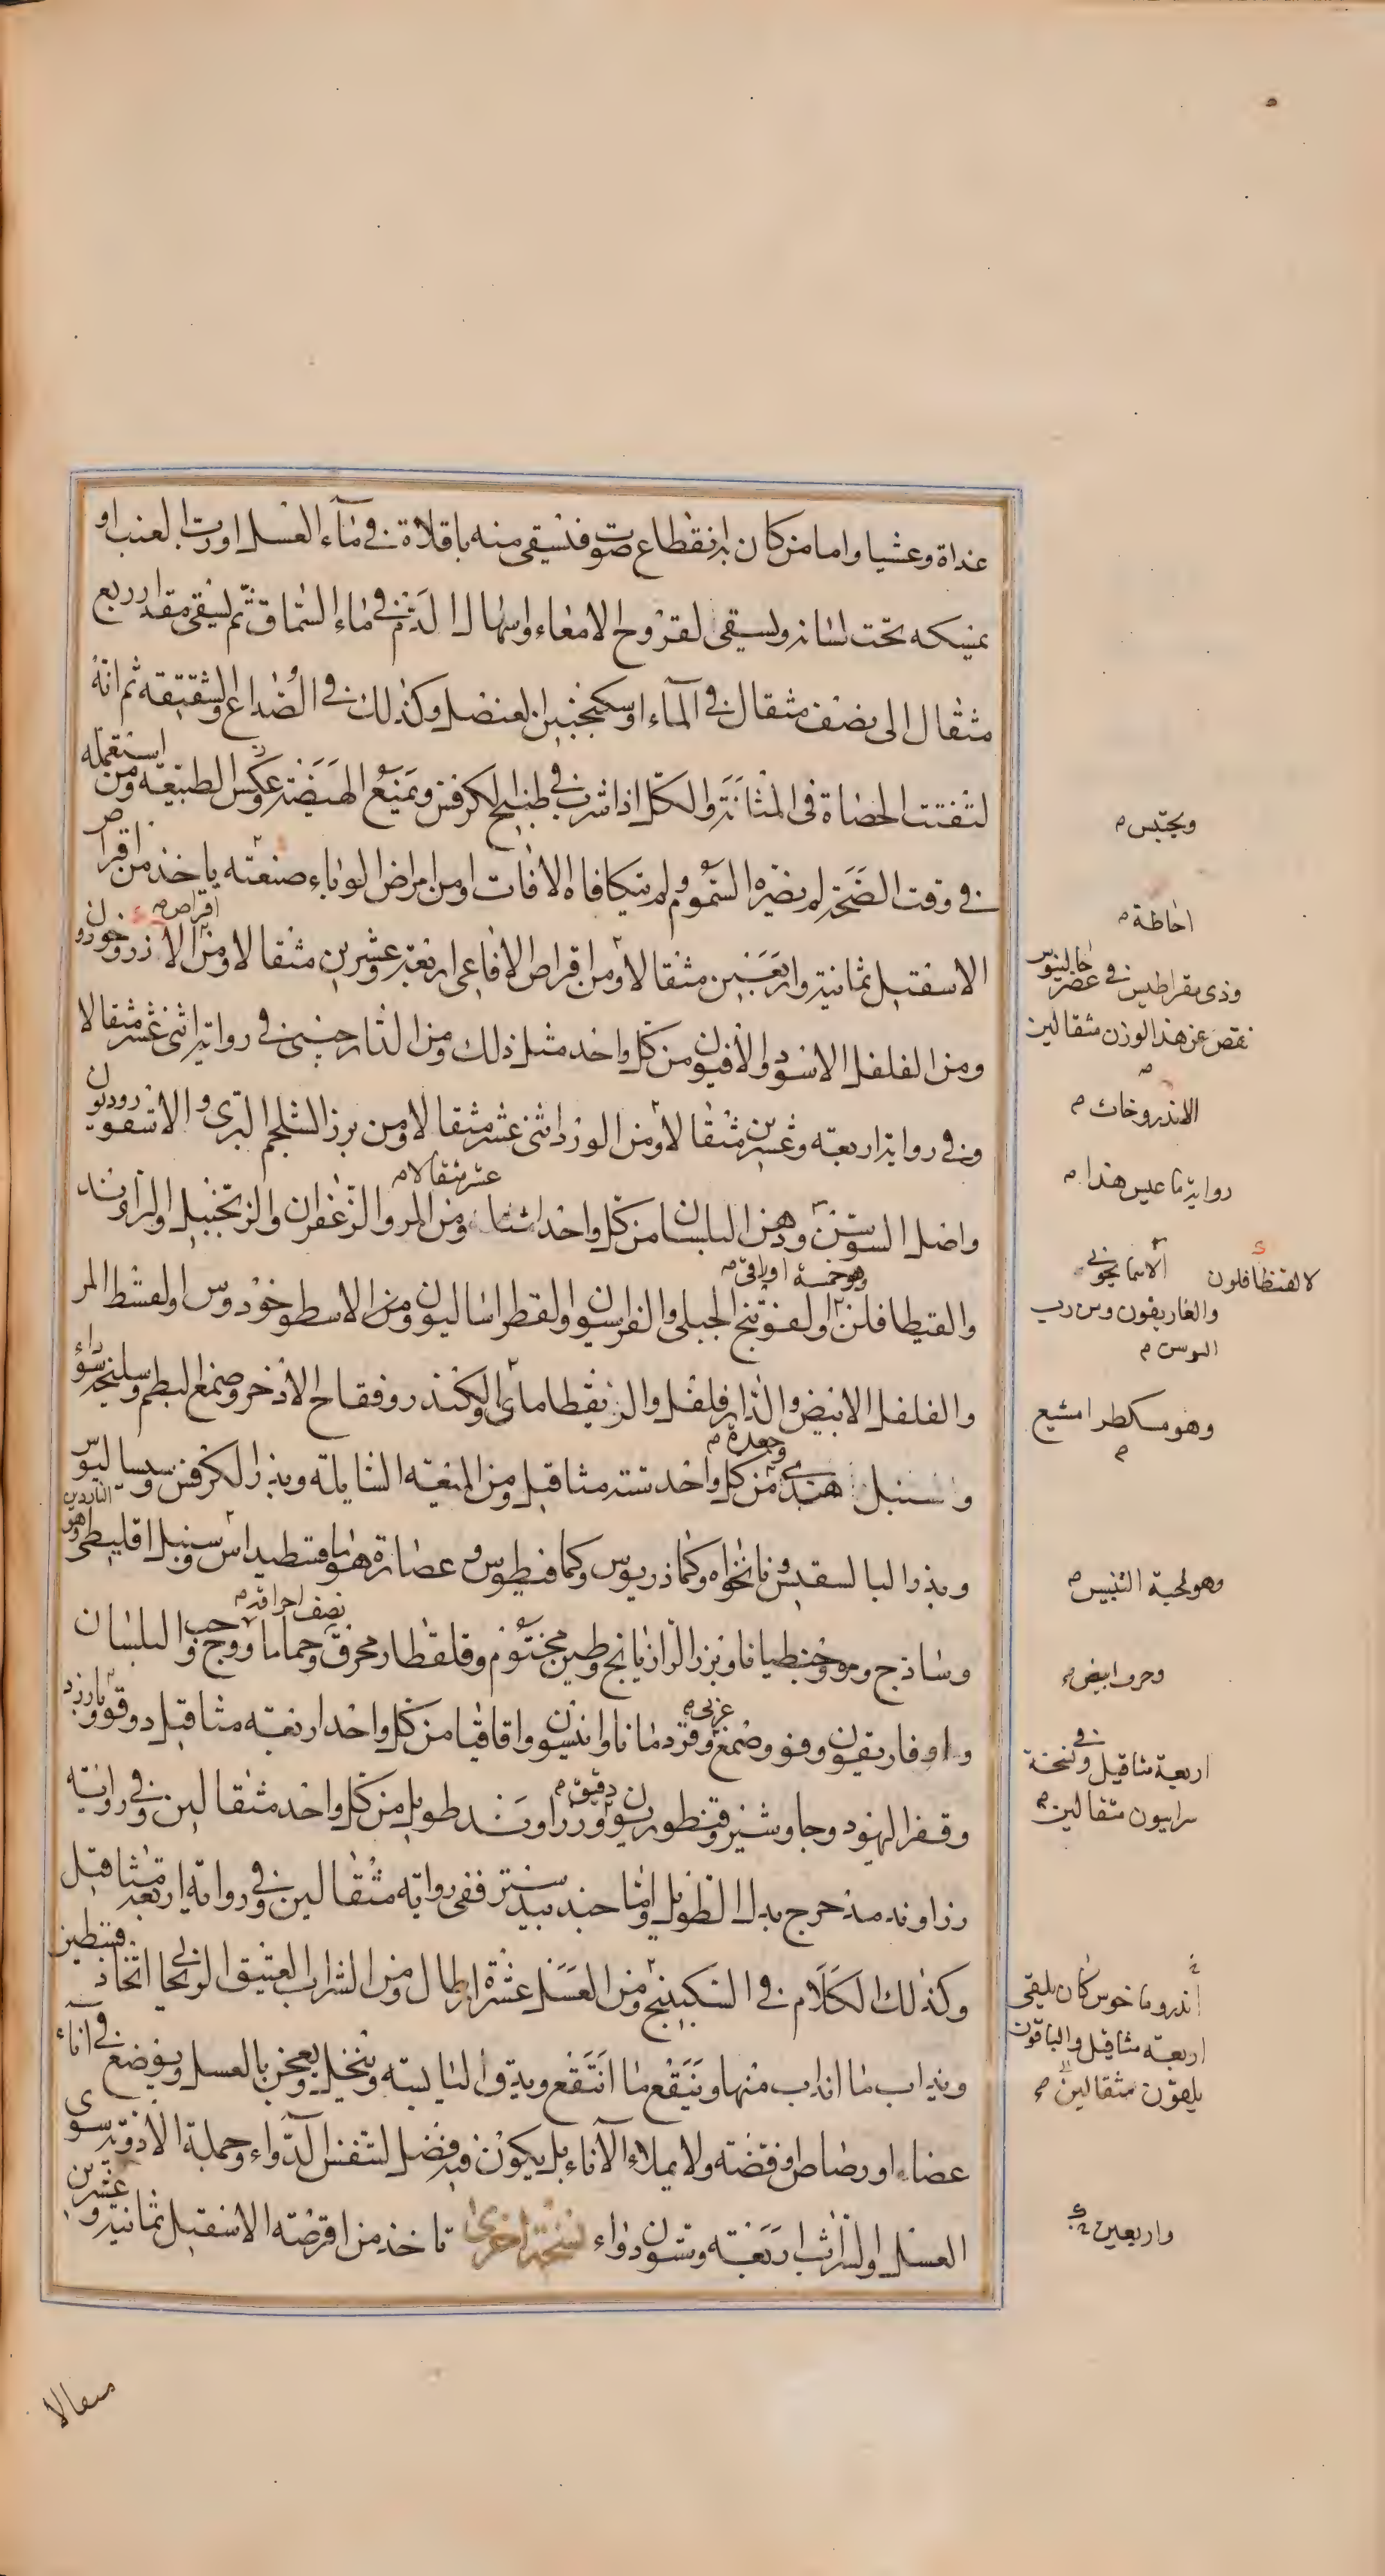 غداة وعشيا واما من كان به انقطاع صوت فنسقى منه باقلاة في مآء العسل او رب العنب او
يمسكه تحت لسانه ولسقى لقروح الامعاء واسهال الدم في ماء السماق ثم ليسقى مقدار ربع
مثقال الى نصف مثقال في المآء او سكنجبين العنصل وكذلك في الصداع والشقيقه ثم انه
لتفتت الحصاة في المثانة والكلى اذا شرب في طبيخ الكرفس ويمنع الهيضة وعكس الطبيعه ومن استعمله
في وقت الصحة لم يضره السموم ولم يتكافاه الافات او من امراض الوباء صنعته ياخذ من اقراص
الاسقيل ثمانية واربعين مثقالا ومن اقراص الافاعي اربعة وعشرين مثقالا ومن اقراص الاذروخورون
ومن الفلفل الاسود والافيون من كل واحد مثل ذلك ومن الدارصيني في رواية اثنى عشر مثقالا
وفي رواية اربعه وعشرين مثقالا ومن الورد اثنى عشر مثقالا ومن بزر الشلجم البري والاسقورديون
واصل السوسن ودهن البلسان من كل واحد اثنا عشر مثقالا ومن المر والزعفران والزنجبيل والراوند
والقيطافلن وهو خمسة اوراق والفوتنج الجبلي والفراسيون والقطراساليون ومن الاسطوخودوس والقسط المر
والفلفل الابيض والدارفلفل والزنقطاماى والكندر وفقاح الاذخر وصمغ البطم وسليخة سوداء
وسنبل هندي وجعدة من كل واحد سته مثاقيل ومن الميعه السايله وبزر الكرفس وسيساليوس
وبزر البالسقيس ونانخواه وكماذريوس وكمافيطوس وعصارة هوفاقسطيداس وسنبل اقليطى وهو الناردين
وساذج ومو وجنطيانا وبزر الرازيانج وطين مختوم وقلقطار محرق نصف احراقه وحماما ووج وحب البلسان
واوفاريقون وفو وصمغ عربي وقردمانا وانيسون واقاقيا من كل واحد اربعه مثاقيل دوقو وبارزد
وقفر اليهود وجاوشير وقنطوريون دقيق وزراوند طويل من كل واحد مثقالين وفي رواية
زراوند مدحرج بدل الطويل واما جندبيدستر ففي روايه مثقالين وفي روايه اربعة مثاقيل
وكذلك الكلام في السكبينج ومن العسل عشرة ارطال ومن الشراب العتيق الريحاني اتخاذ قسطين
ويذاب ما انذاب منها وينقع ما انتقع ويدق اليابسه وينخل ويعجن بالعسل ويوضع في اناء
غضار او رصاص او فضه ولا يملاء الاناء بل يكون فيه فضل لتنفس الدواء وجملة الادوية سوى
العسل والشراب اربعة وستون دواء نسخة اخرى تاخذ من اقرصة الاسقيل ثمانية وعشرين
مثقالا
ويحتبس
احاطة
وذي مقراطيس في عصر جالينوس
نقص عن هذا الوزن مثقالين
الاندروخان
رواية ما عين هذا
الاسمانجوني
لا لقنطافلون
والغاريقون ومن رب
السوس
وهو مسكطرامشيع
وهو لحية التيس
وحرف ابيض
اربعة مثاقيل وفي نسخة
سرابيون مثقالين
اندروماخوس كان يلقى
اربعة مثاقيل والباقون
يلقون مثقالين
واربعين